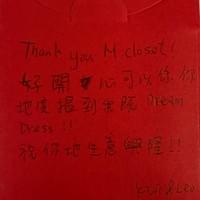 Thank you M.closet!
好開心可以係你
地度搵到我既 Dream
Dress!!
祝你地生意興隆!!